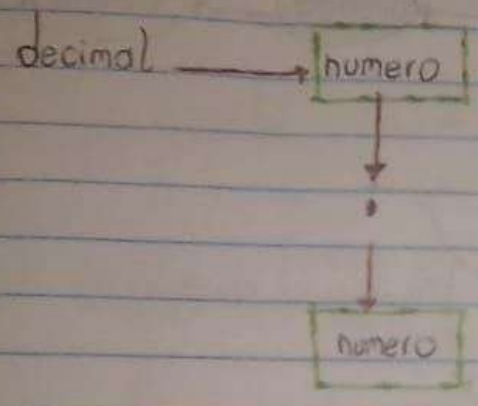 decimal numero
.
numero